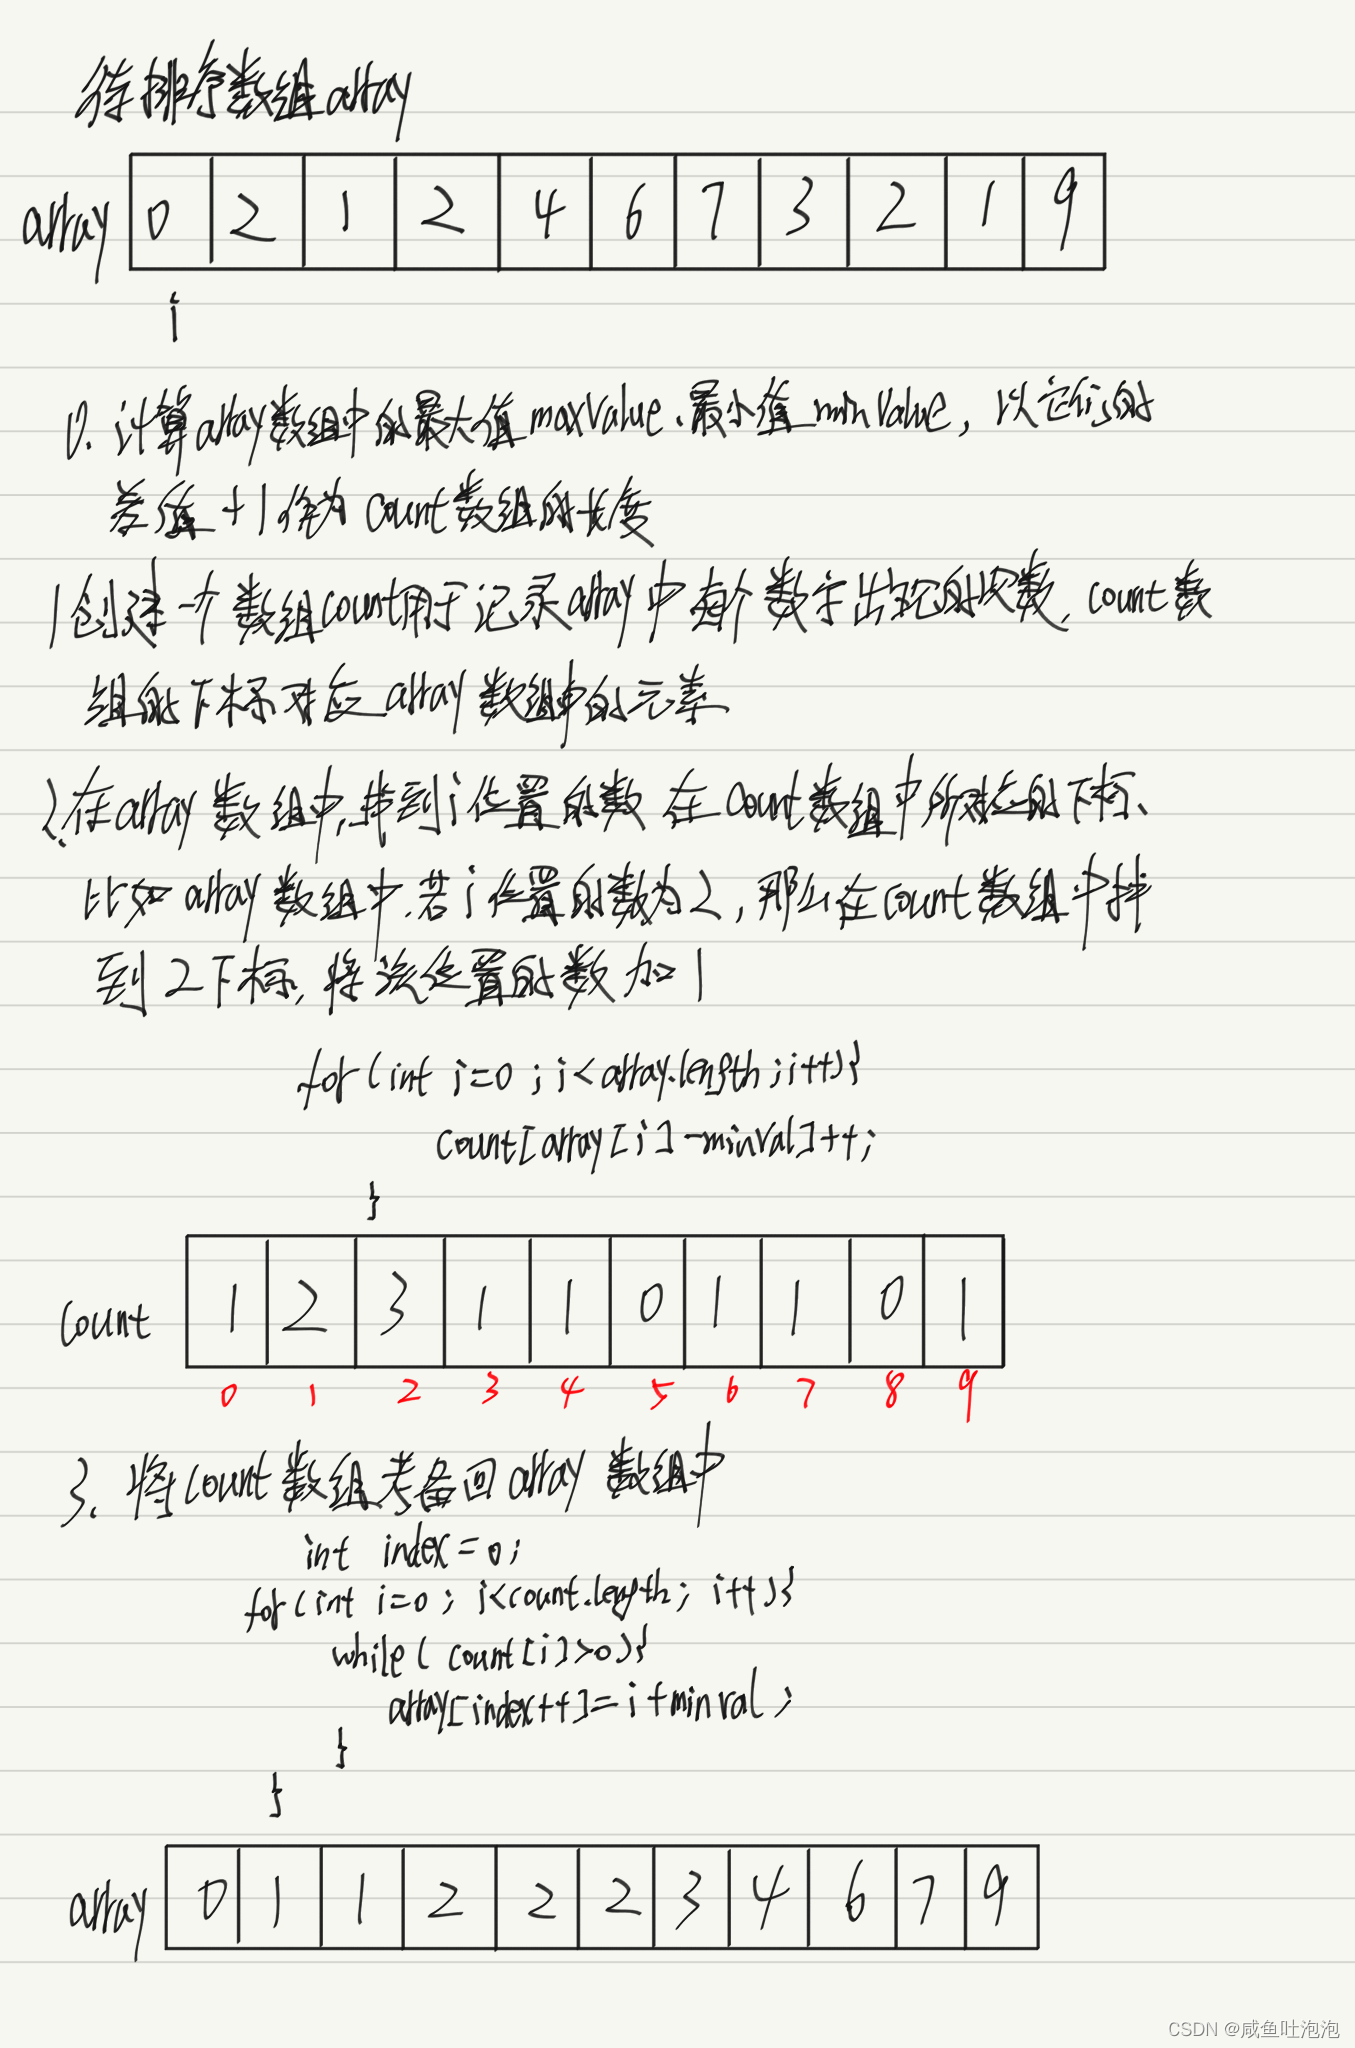 待排序数组array
array 0 2 1 2 4 6 7 3 2 1 9
i
0. 计算array数组中的最大值maxValue、最小值minValue, 以它们的
差值+1作为count数组的长度
1创建一个数组count用于记录array中每个数字出现的次数, count数
组的下标对应array数组中的元素
2.在array数组中,找到i位置的数在count数组中所对应的下标、
比如array数组中,若i位置的数为2, 那么在count数组中找
到2下标, 将该位置的数加1
for(int i=0 ; i<array.length ; i++){
count[array[i]-minval]++;
}
count 1 2 3 1 1 0 1 1 0 1
0 1 2 3 4 5 6 7 8 9
3. 将count数组拷备回array数组中
int index=0;
for(int i=0 ; i<count.length ; i++){
while( count[i]>0){
array[index++]=i+minval ;
}
}
array 0 1 1 2 2 2 3 4 6 7 9
CSDN @咸鱼吐泡泡